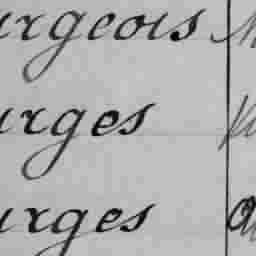 urgeois
urges
urges